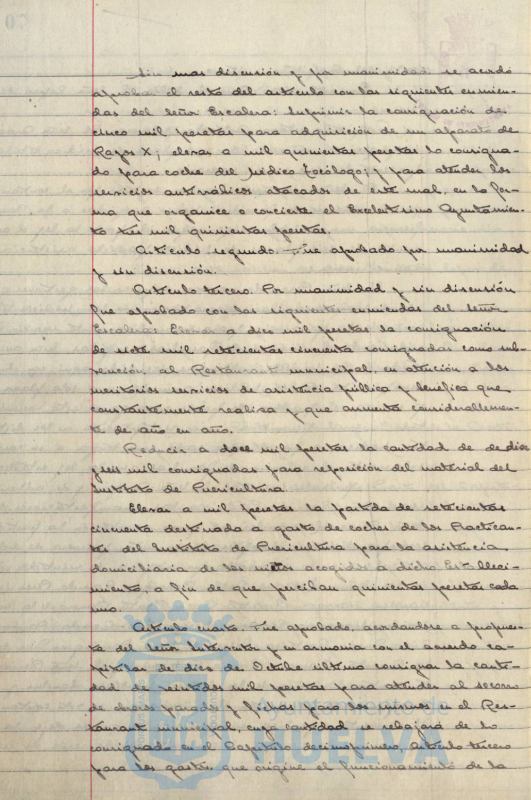 Sin mas discusión y por unanimidad se acordó
aprobar el resto del artículo con las siguientes enmien-
das del señor Escalera: Suprimir la consignación de
cinco mil pesetas para adquisición de un aparato de
Rayos X; elevar a mil quinientas pesetas lo consigna-
do para coche del Médico Tocólogo; y para atender los
servicios antirrábicos atacados de este mal, en la for-
ma que organice o concierte el Excelentísimo Ayuntamien-
to tres mil quinientas pesetas.
Artículo segundo. - Fue aprobado por unanimidad
y sin discusión.
Artículo tercero. Por unanimidad y sin discusión
fue aprobado con las siguientes enmiendas del señor
Escalera: Elevar a diez mil pesetas la consignación
de siete mil setecientas cincuenta consignadas como sub-
vención al Restaurant municipal, en atención a los
meritorios servicios de asistencia pública y benéfica que
constantemente realiza y que aumenta considerablemen-
te de año en año.
Reducir a doce mil pesetas la cantidad de de diez
y seis mil consignadas para reposición del material del
Instituto de Puericultura
Elevar a mil pesetas la partida de setecientas
cincuenta destinada a gasto de coches de los Practican-
tes del Instituto de Puericultura para la asistencia
domiciliaria de los niños acogidos a dicho Estableci-
miento, a fin de que perciban quinientas pesetas cada
uno.
Artículo cuarto. - Fue aprobado, acordandose a propues-
ta del señor Interventor y en armonia con el acuerdo ca-
pitular de diez de Octubre último consignar la canti-
dad de veintidos mil pesetas para atender al socorro
de obreros parados y fichas para los mismos en el Res-
taurant municipal, cuya cantidad se rebajará de lo
consignado en el Capítulo decimoprimero, Artículo tercero
para los gastos que origine el funcionamiento de la
HUELVA